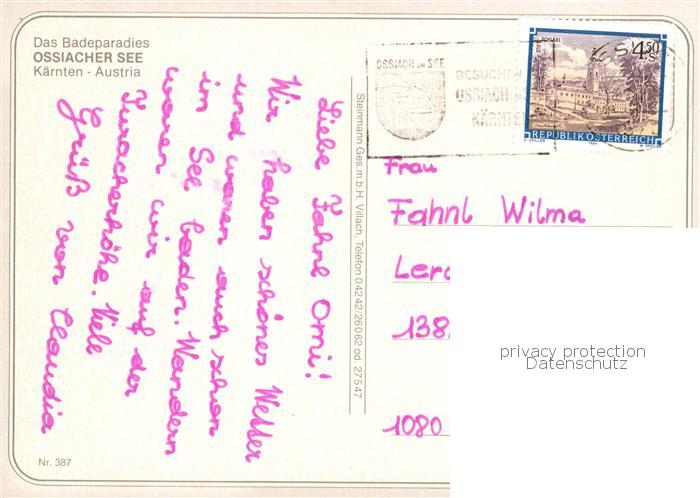 Das Badeparadies
OSSIACHER SEE
Kärnten - Austria
Liebe Fahnl Omi!
Wir haben schönes Wetter
und waren auch schon
im See baden. Wandern
waren wir auf der
Turacherhöhe. Viele
Grüße von Claudia
Nr. 387
Steinmann Ges.m.b.H. Villach, Telefon 04242/26062 od. 27547
OSSIACH AM SEE
BESUCHEN
OSSIACH
KÄRNTEN
4.50
S
REPUBLIK ÖSTERREICH
Frau
Fahnl Wilma
Lerc
138
1080
privacy protection
Datenschutz